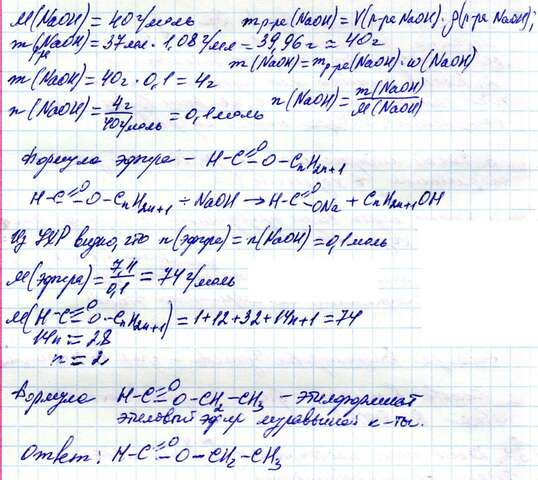 M(NaOH) = 40 г/моль m р-ра (NaOH) = V(р-ра NaOH) · ρ(р-ра NaOH);
m р-ра (NaOH) = 37мл · 1,08 г/мл = 39,96г ≈ 40г
m(NaOH) = m р-ра (NaOH) · ω(NaOH)
m(NaOH) = 40г · 0,1 = 4г
n(NaOH) = 4г/40г/моль = 0,1 моль n(NaOH) = m(NaOH)/M(NaOH)
Формула эфира – H-C=O-O-CnH2n+1
H-C=O-O-CnH2n+1 + NaOH → H-C=O-ONa + CnH2n+1OH
Из УХР видно, что n(эфира) = n(NaOH) = 0,1 моль
M(эфира) = 7,4/0,1 = 74 г/моль
M(H-C=O-O-CnH2n+1) = 1+12+32+14n+1 = 74
14n = 28
n = 2,
Формула H-C=O-O-CH2-CH3 – этилформиат
этиловый эфир муравьиной к-ты.
Ответ: H-C=O-O-CH2-CH3